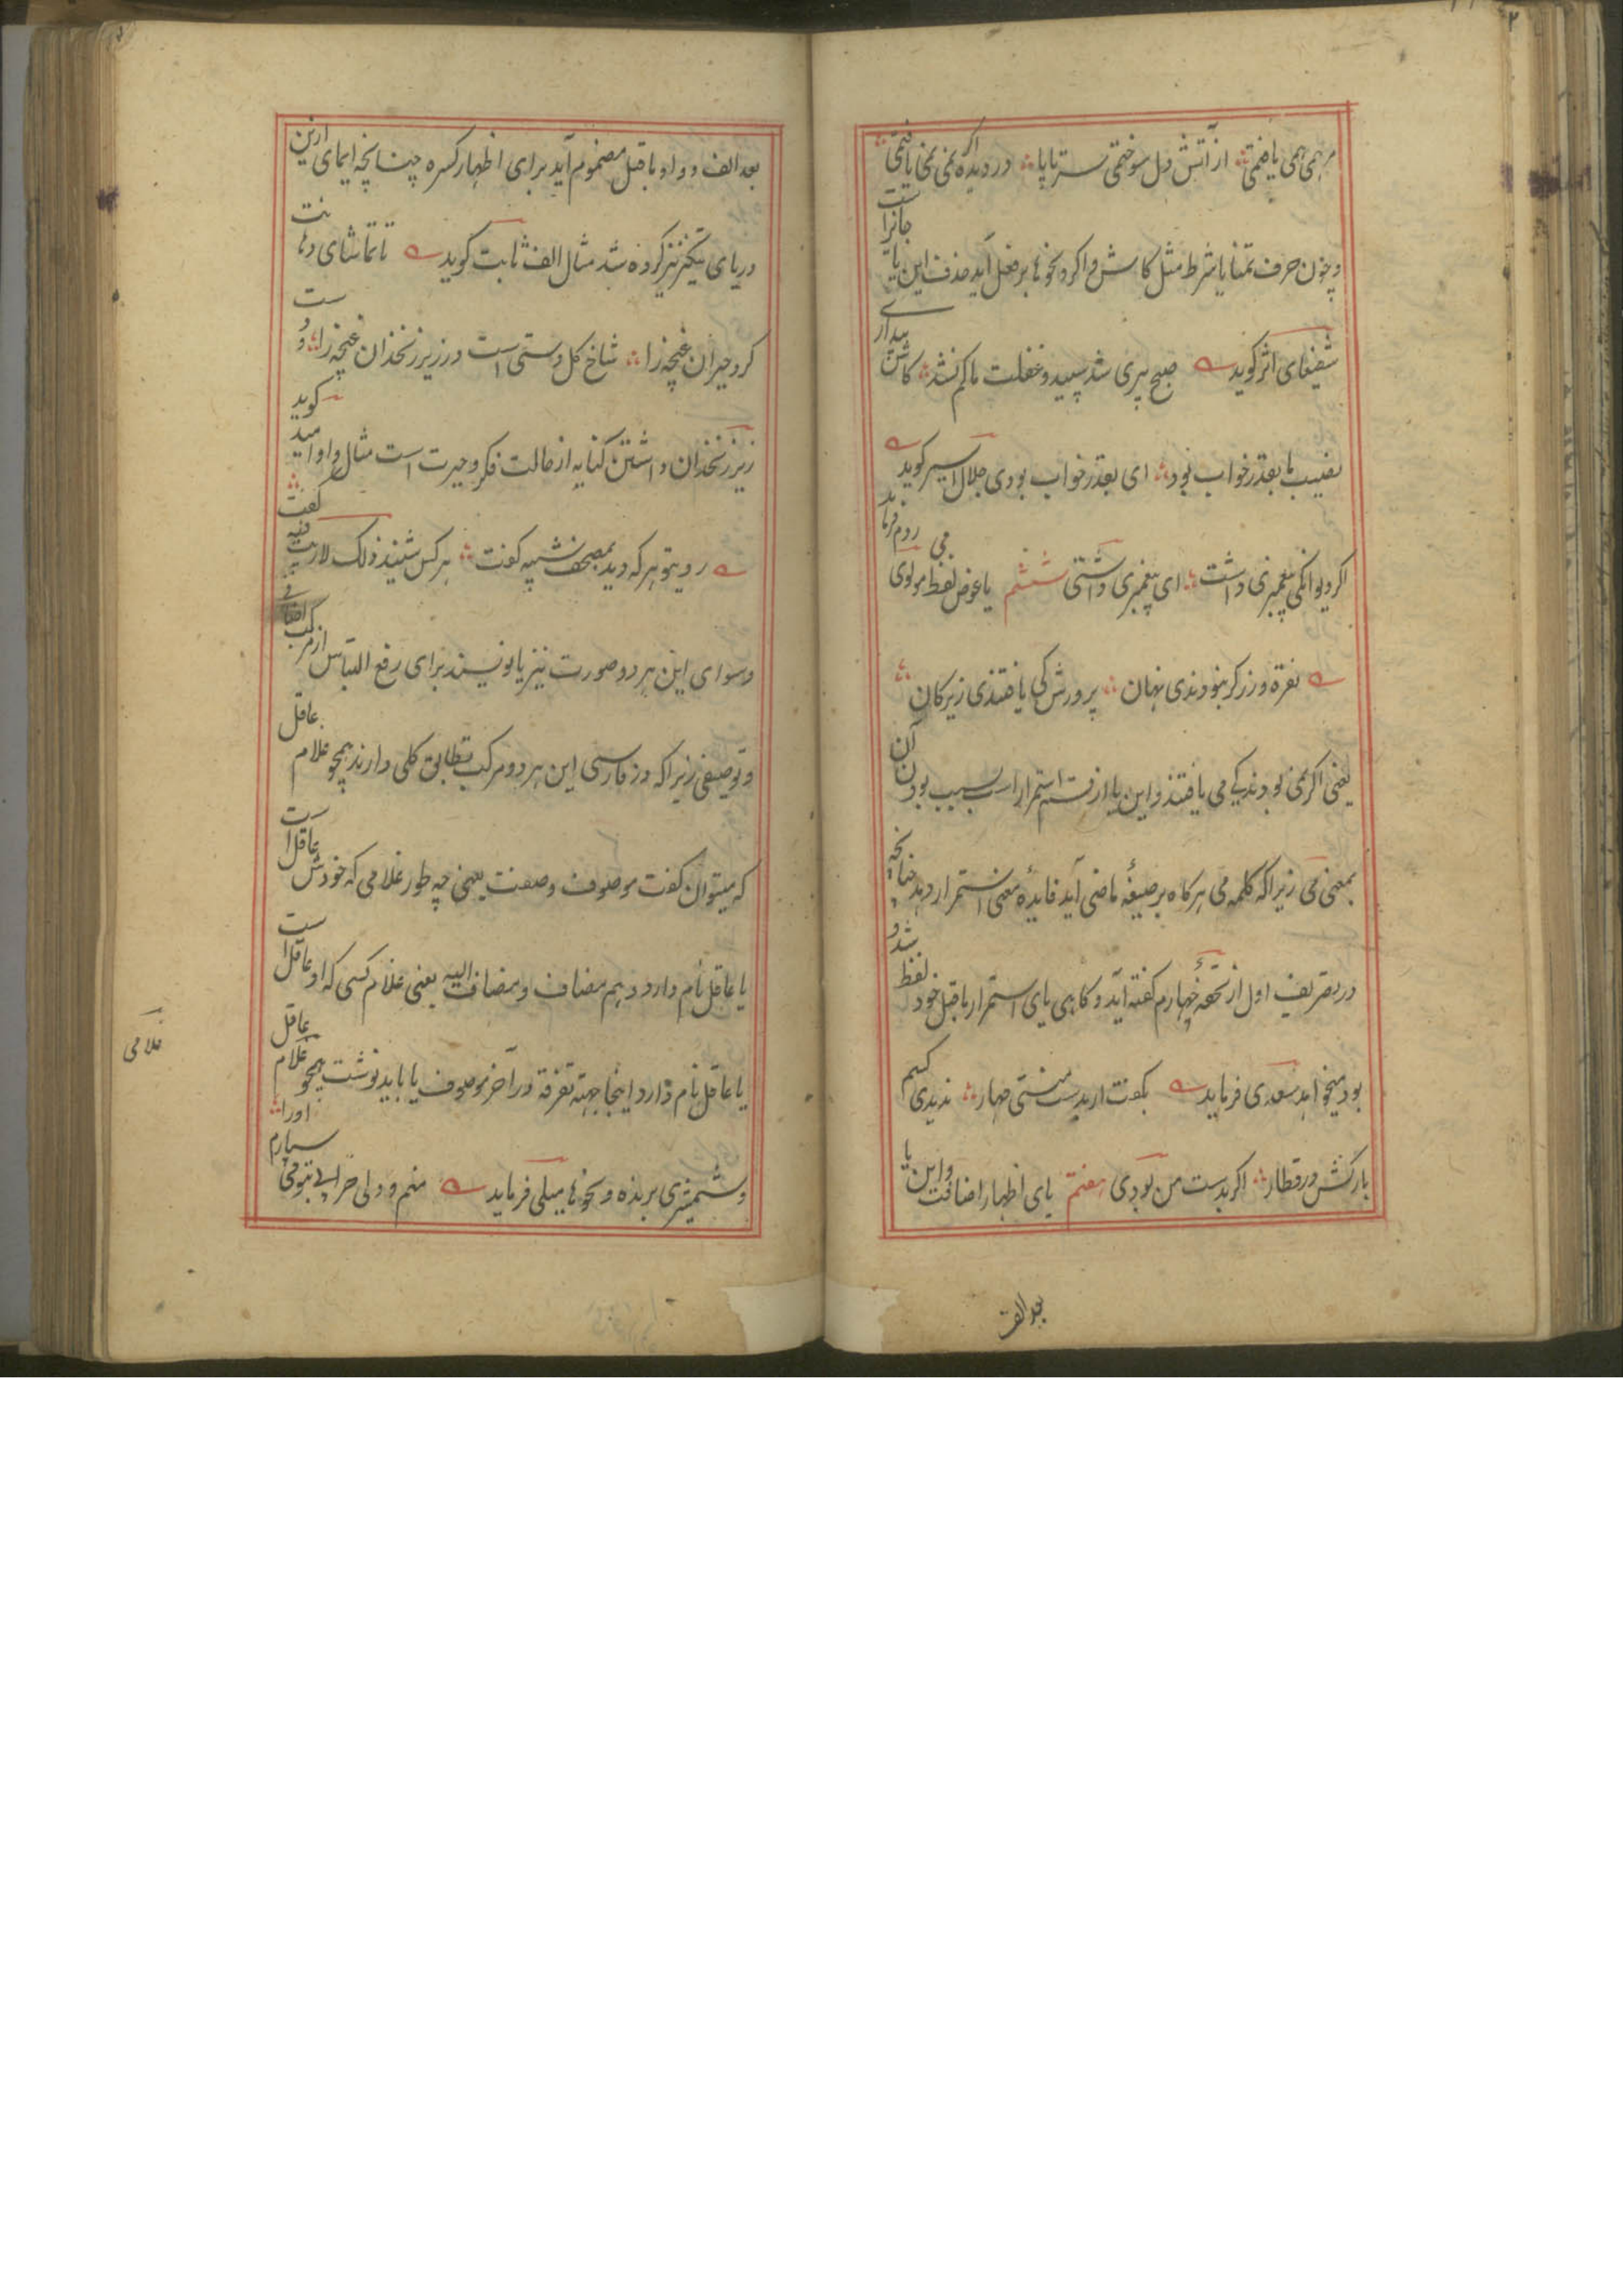 مرهمی همی یافتمی ؞ از آتش دل سوختمی سرتاپا ؞ در دیده اکر نمی نمی یافتمی ؞
و چون حرف تمنا یا شرط مثل کاش و اکر و نحوها بر فعل آید حذف این یا جائز است
شفیعای اثر کوید صبح پیری شد سپید و غفلت ما کم نشد ؞ کاش بیداری
نصیب ما بقدر خواب بود ؞ ای بقدر خواب بودی جلال اسیر کوید
اکر دیوانکی پیغمبری داشت ؞ ای پیغمبری داشتی ششم یا عوض لفظ می مولوی روم فرماید
نقره و زر کر نبودندی نهان ؞ پرورش کی یافتندی زیر کان ؞
یعنی اکر نمی بودند کی می یافتند و این یا از قسم استمرار است سبب بودن آن
بمعنی می زیرا که کلمه می هرکاه بر صیغهٔ ماضی آید فایدهٔ معنی استمرار دهد چنانچه
در تعریف اول از تحفهٔ چهارم کفته آید و کاهی یای استمرار ماقبل خود لفظ شد و
بود میخواهد سعدی فرماید بکفت ار بدست منستی مهار ؞ ندیدی کسم
بارکش در قطار ؞ اکر بدست من بودی هفتم یای اظهار اضافت و این یا
بعد الف
بعد الف و واو ماقبل مضموم آید برای اظهار کسره چنانچه ایمای ازین
در یای تنکیر نیز کرده شد مثال الف ثابت کوید تا تماشای دهانت
کرد حیران غنچه را ؞ شاخ کل دستی است در زیر زنخدان غنچه را ؞ و دست
زیر زنخدان داشتن کنایه از حالت فکر و حیرت است مثال واو امید کوید
روی تو هر که دید بمصحف شبیه کفت ؞ هر کس شنید ذلک لاریب فیه کفت ؞
و سوای این هر دو صورت نیز یا نویسند برای رفع التباس از مرکب اضافی
و توصیفی زیرا که در فارسی این هر دو مرکب تطابق کلی دارند همچو غلام عاقل
که میتوان کفت موصوف و صفت یعنی چه طور غلامی که خودش عاقل است
یا عاقل نام دارد و هم مضاف و مضاف الیه یعنی غلام کسی که او عاقل است
یا عاقل نام دارد اینجا بجهته تفرقه در آخر موصوف یا باید نوشت همچو غلام عاقل
غلامی
و شمشیری برنده و نحوها میلی فرماید منم و دلی خرابی بتو می سپارم او را ؞